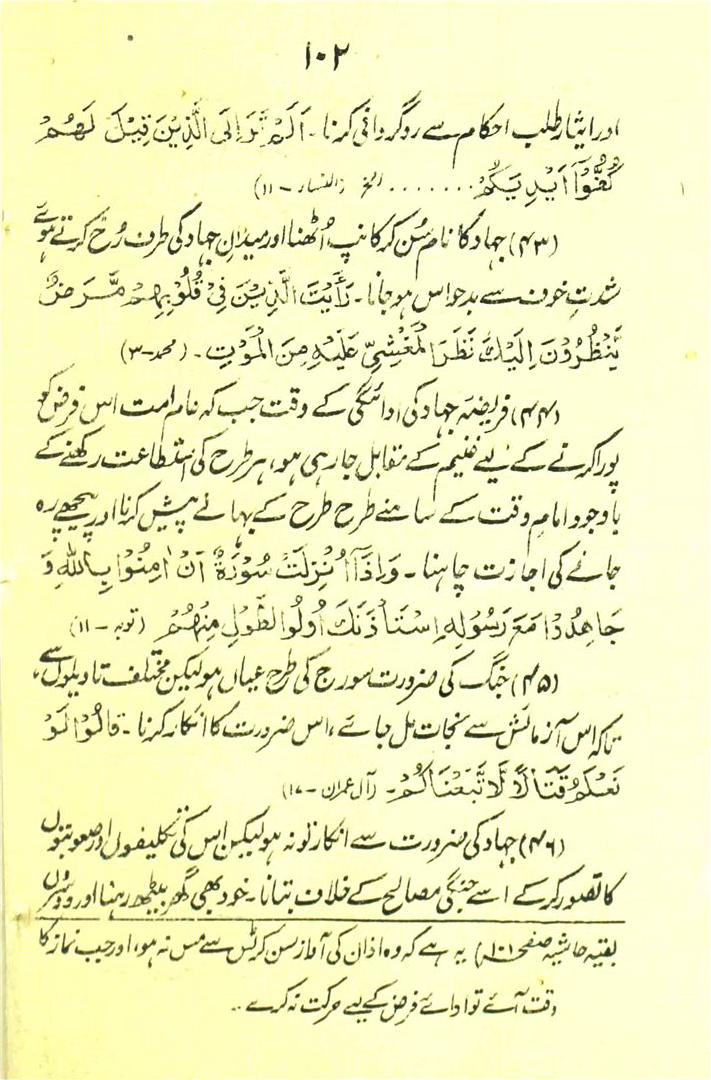 ۱۰۲
اور ایثار طلب احکام سے روگردانی کرنا۔ اَلَمْ تَرَ اِلَی الَّذِیْنَ قِیْلَ لَھُمْ
کُفُّوْٓا اَیْدِیَکُمْ ........ الخ (النساء - ۱۱)
(۴۳) جہاد کا نام سُن کر کانپ اُٹھنا اور میدانِ جہاد کی طرف رُخ کرتے ہوئے
شدتِ خوف سے بدحواس ہو جانا۔ رَاَیْتَ الَّذِیْنَ فِیْ قُلُوْبِھِمْ مَّرَضٌ
یَّنْظُرُوْنَ اِلَیْكَ نَظَرَ الْمَغْشِیِّ عَلَیْهِ مِنَ الْمَوْتِ۔ (محمد-۳)
(۴۴) فریضۂ جہاد کی ادائگی کے وقت جب کہ عام امت اس فرض کو
پورا کرنے کے لیے غنیم کے مقابل جا رہی ہو، ہر طرح کی استطاعت رکھنے کے
باوجود امامِ وقت کے سامنے طرح طرح کے بہانے پیش کرنا اور پیچھے رہ
جانے کی اجازت چاہنا۔ وَاِذَآ اُنْزِلَتْ سُوْرَةٌ اَنْ اٰمِنُوْا بِاللهِ وَ
جَاھِدُوْا مَعَ رَسُوْلِهِ اسْتَاْذَنَكَ اُولُوا الطَّوْلِ مِنْھُمْ (توبہ - ۱۱)
(۴۵) جنگ کی ضرورت سورج کی طرح عیاں ہو لیکن مختلف تاویلوں سے،
تاکہ اس آزمائش سے نجات مل جائے، اس ضرورت کا انکار کرنا۔ قَالُوْا لَوْ
نَعْلَمُ قِتَالًا لَّا تَّبَعْنَاکُمْ۔ (آل عمران - ۱۷)
(۴۶) جہاد کی ضرورت سے انکار تو نہ ہو لیکن اس کی تکلیفوں اور صعوبتوں
کا تصور کر کے اسے جنگی مصالح کے خلاف بتانا۔ خود بھی گھر بیٹھ رہنا اور دوسروں
بقیہ حاشیہ صفحہ ۱۰۱) یہ ہے کہ وہ اذان کی آواز سن کر ٹس سے مس نہ ہو، اور جب نماز کا
وقت آئے تو ادائے فرض کے لیے حرکت نہ کرے ..